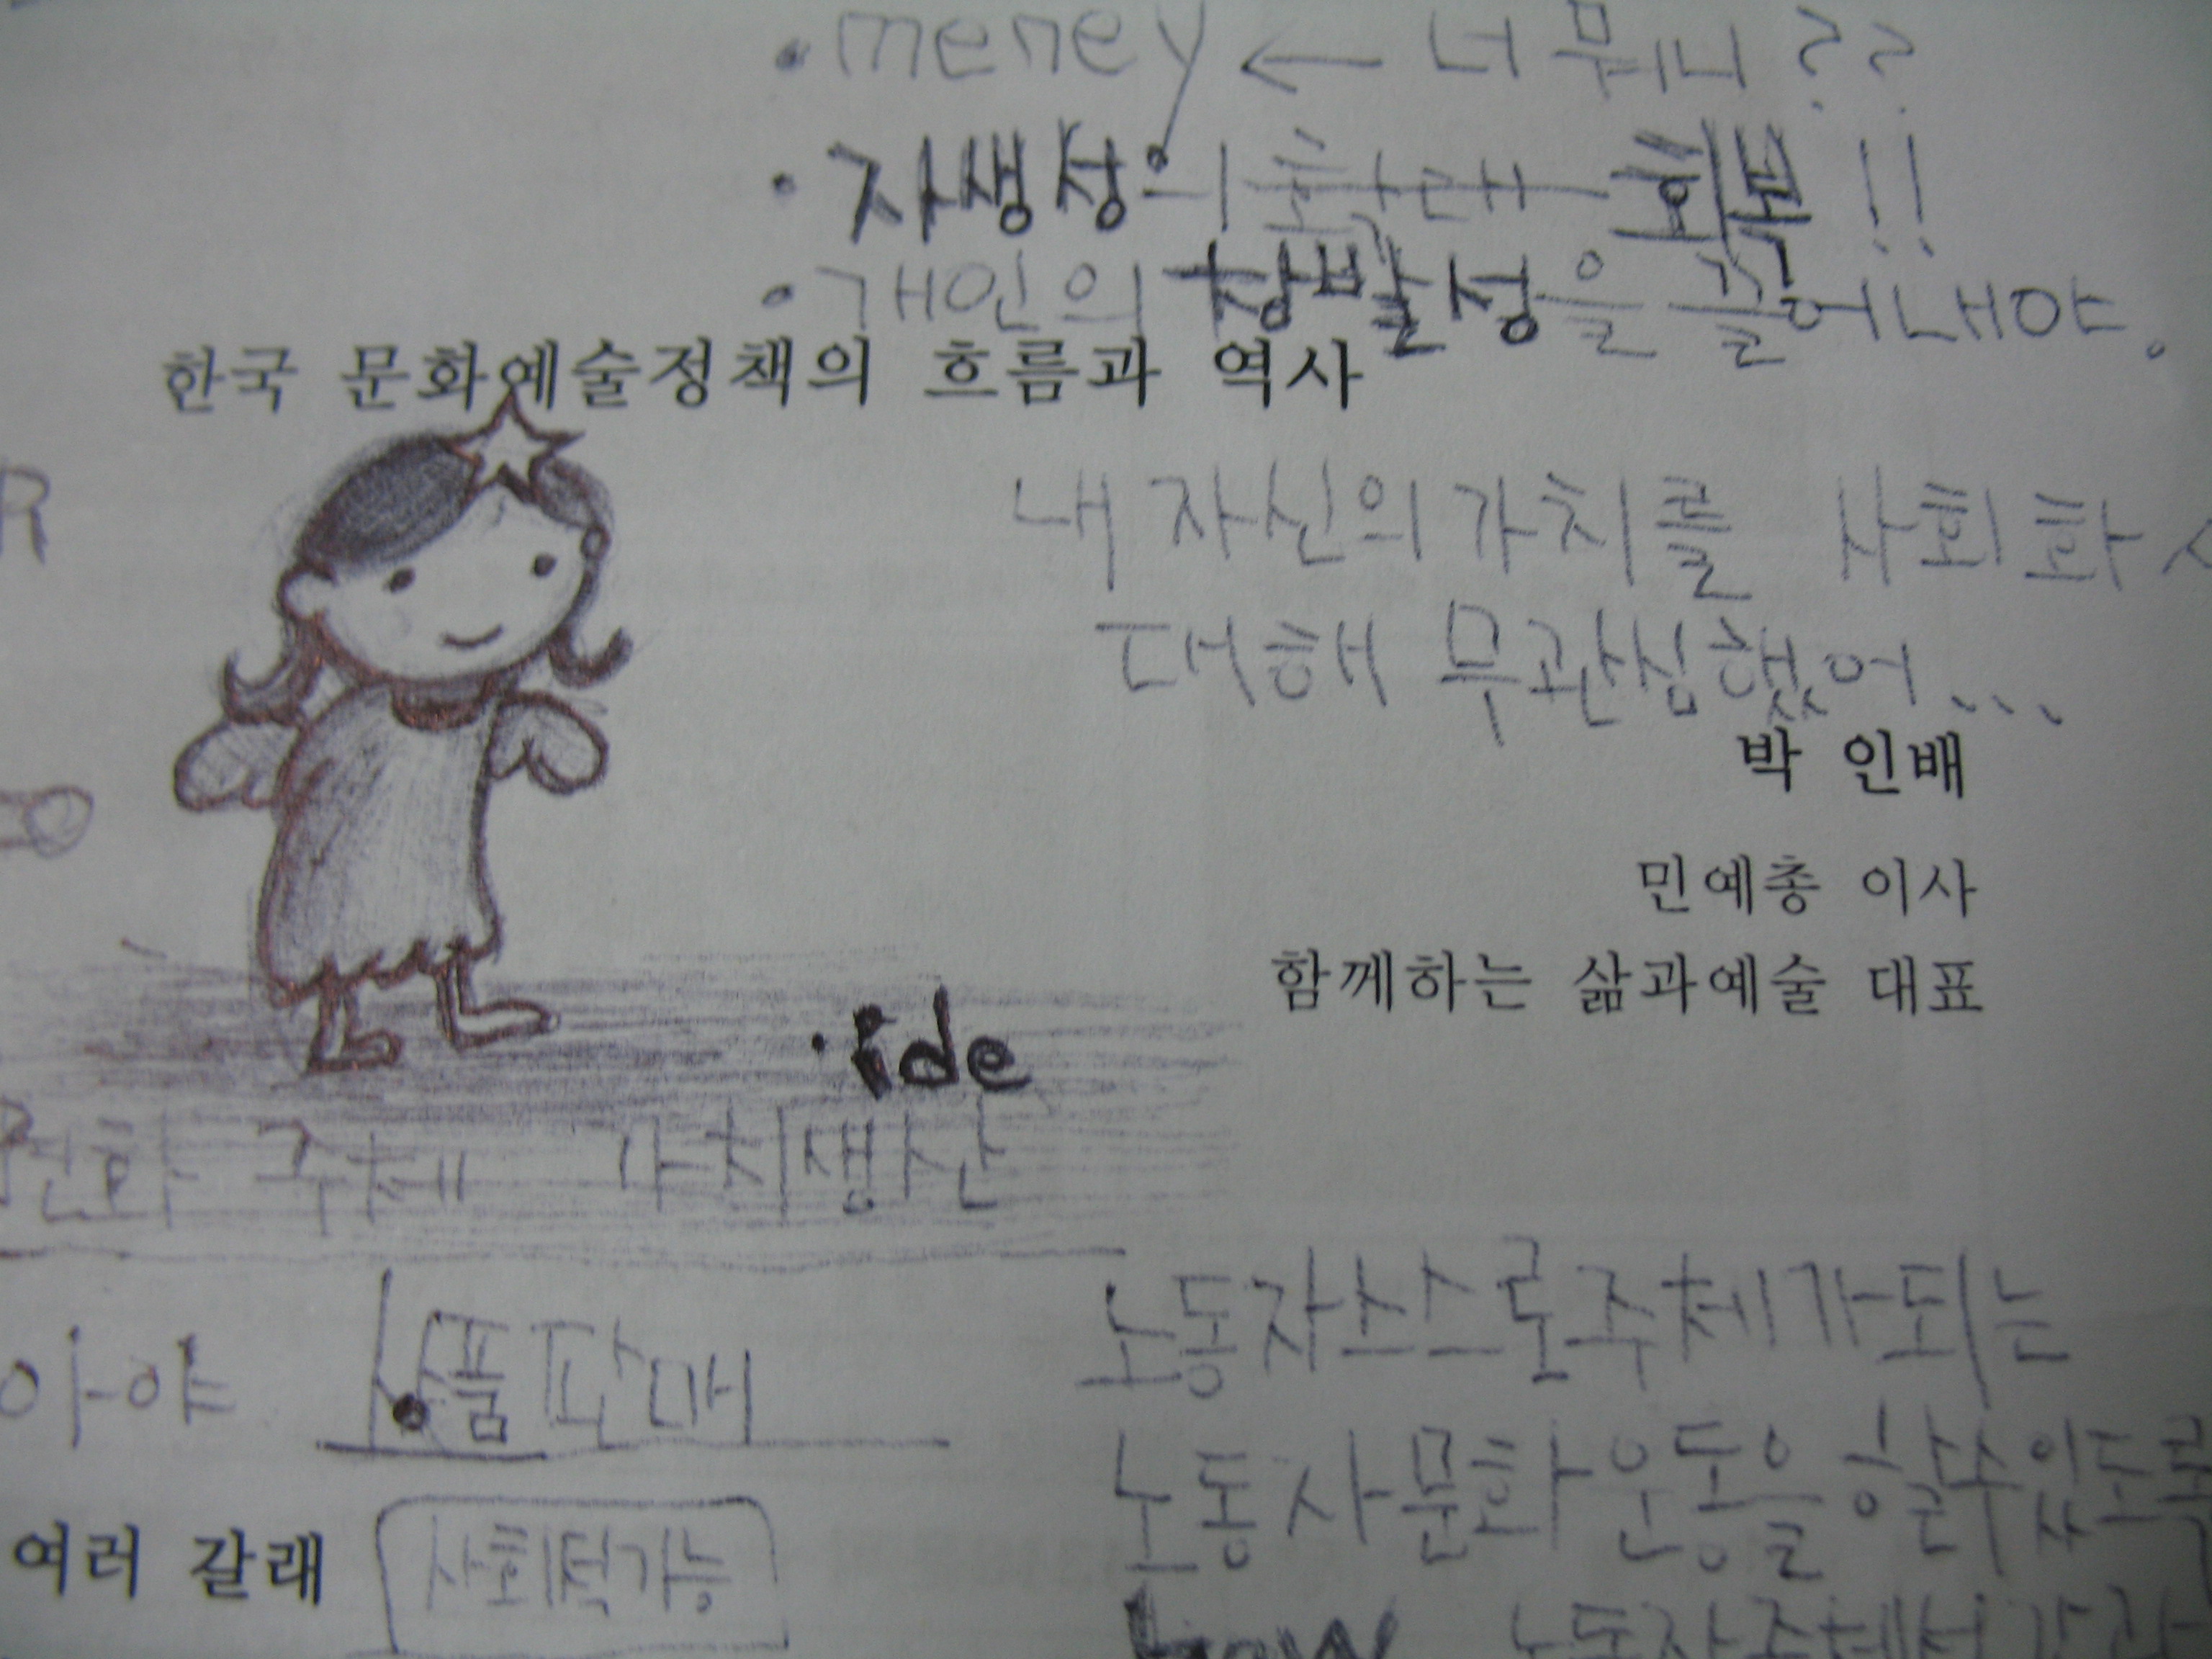 · meney ← 너 뭐니 ??
· 자생성의 확대 회복 !!
· 개인의 창발성을 끌어내야.
한국 문화예술정책의 흐름과 역사
R
내 자신의 가치를 사회화
대해 무관심했어...
박 인배
민예총 이사
함께하는 삶과예술 대표
· ide
문화 주체 가치생산
노동자 스스로 주체가 되는
아야 상품판매
노동자 문화 운동을 할 수 있도록
여러 갈래 사회적가능
how 노동자 주체